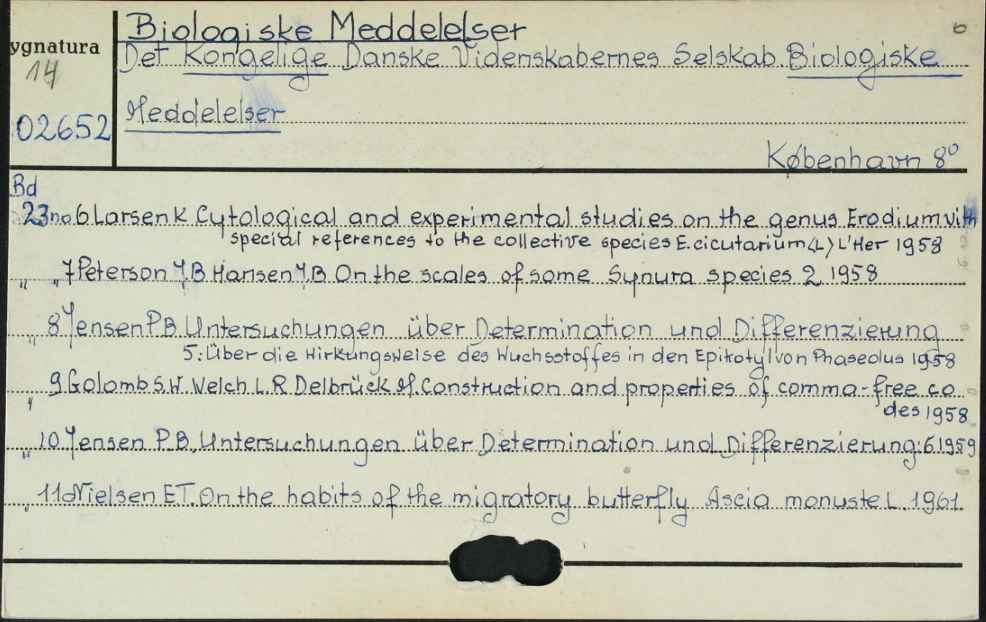 Biologiske Meddelelser
ygnatura
14
Det Kongelige Danske Videnskabernes Selskab. Biologiske
Meddelelser
02652
København 8°
Bd
23 no 6 Larsen K. Cytological and experimental studies on the genus Erodium with
special references to the collective species E. cicutarium (L) L'Her 1958
" " 7 Peterson J.B. Hansen J.B. On the scales of some Synura species 2 1958
" 8 Jensen P.B. Untersuchungen über Determination und Differenzierung
5: Über die Wirkungsweise des Wuchsstoffes in den Epikotyl von Phaseolus 1958
" 9 Golomb S.W. Welch L.R. Delbrück M. Construction and properties of comma-free co
des 1958
" 10 Jensen P.B. Untersuchungen über Determination und Differenzierung: 6 1959
" 11 Nielsen E.T. On the habits of the migratory butterfly Ascia monuste L. 1961